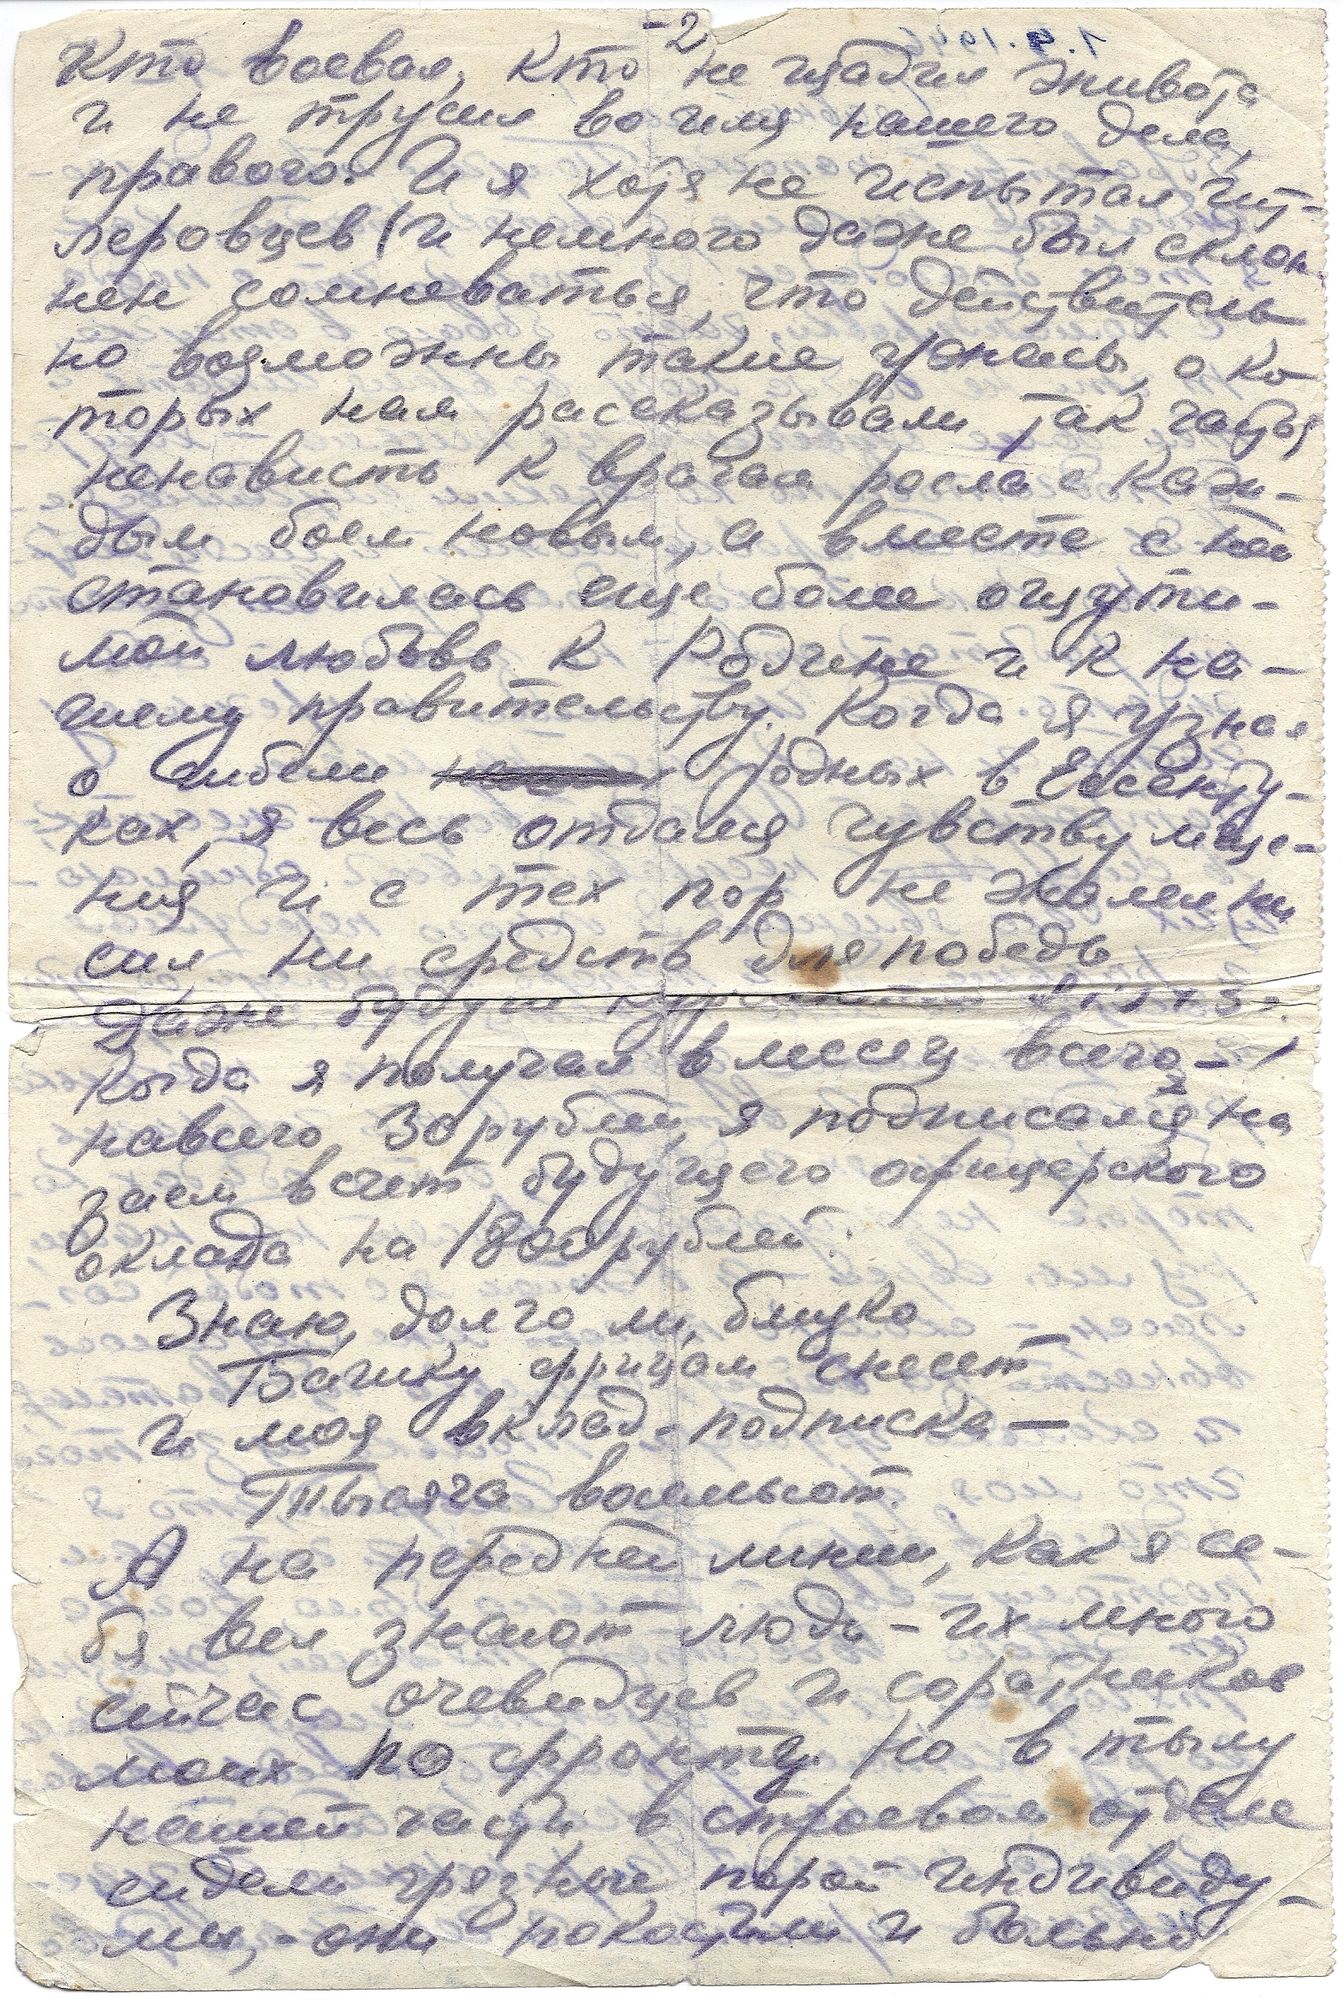 -2
Кто воевал, кто не щадил живота
и не трусил во имя нашего дела
правого. И я хотя не испытал гит-
леровцев (и немного даже был склон-
нен сомневаться, что действитель
но возможны такие ужасы, о ко-
торых нам рассказывали так часты
ненависть к врагам росла с каж-
дым боем новым, а вместе с ней
становилась еще более ощути-
мой любовь к Родине и к на-
шему правительству. Когда я узнал
о гибели родных в Ессенту-
ках, я весь отдался чувству мще-
ния и с тех пор не жалел ни
сил ни средств для победы
Даже будучи
Когда я получал в месец всего-
навсего 30 рублей, я подписался на
заем в счет будущего офицерского
оклада на 1800 рублей:
Знаю, долго ли, близко
Башку фрицам снесет
и моя вклад-подписка —
Тысяча восемьсот.
А на передней линии, как я се-
бя вел знают люди - их много
сейчас очевидцев и соратников
моих по фронту. Но в тылу
нашей части, в строевом отделе
сидели грязные порой индивиду-
мы, - они пакостили и больно